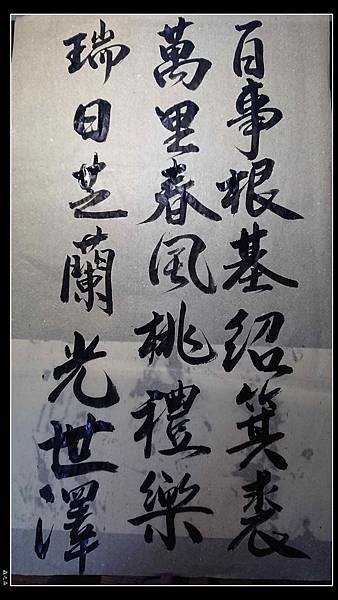 百事根基紹箕裘
萬里春風桃禮樂
瑞日芝蘭光世澤